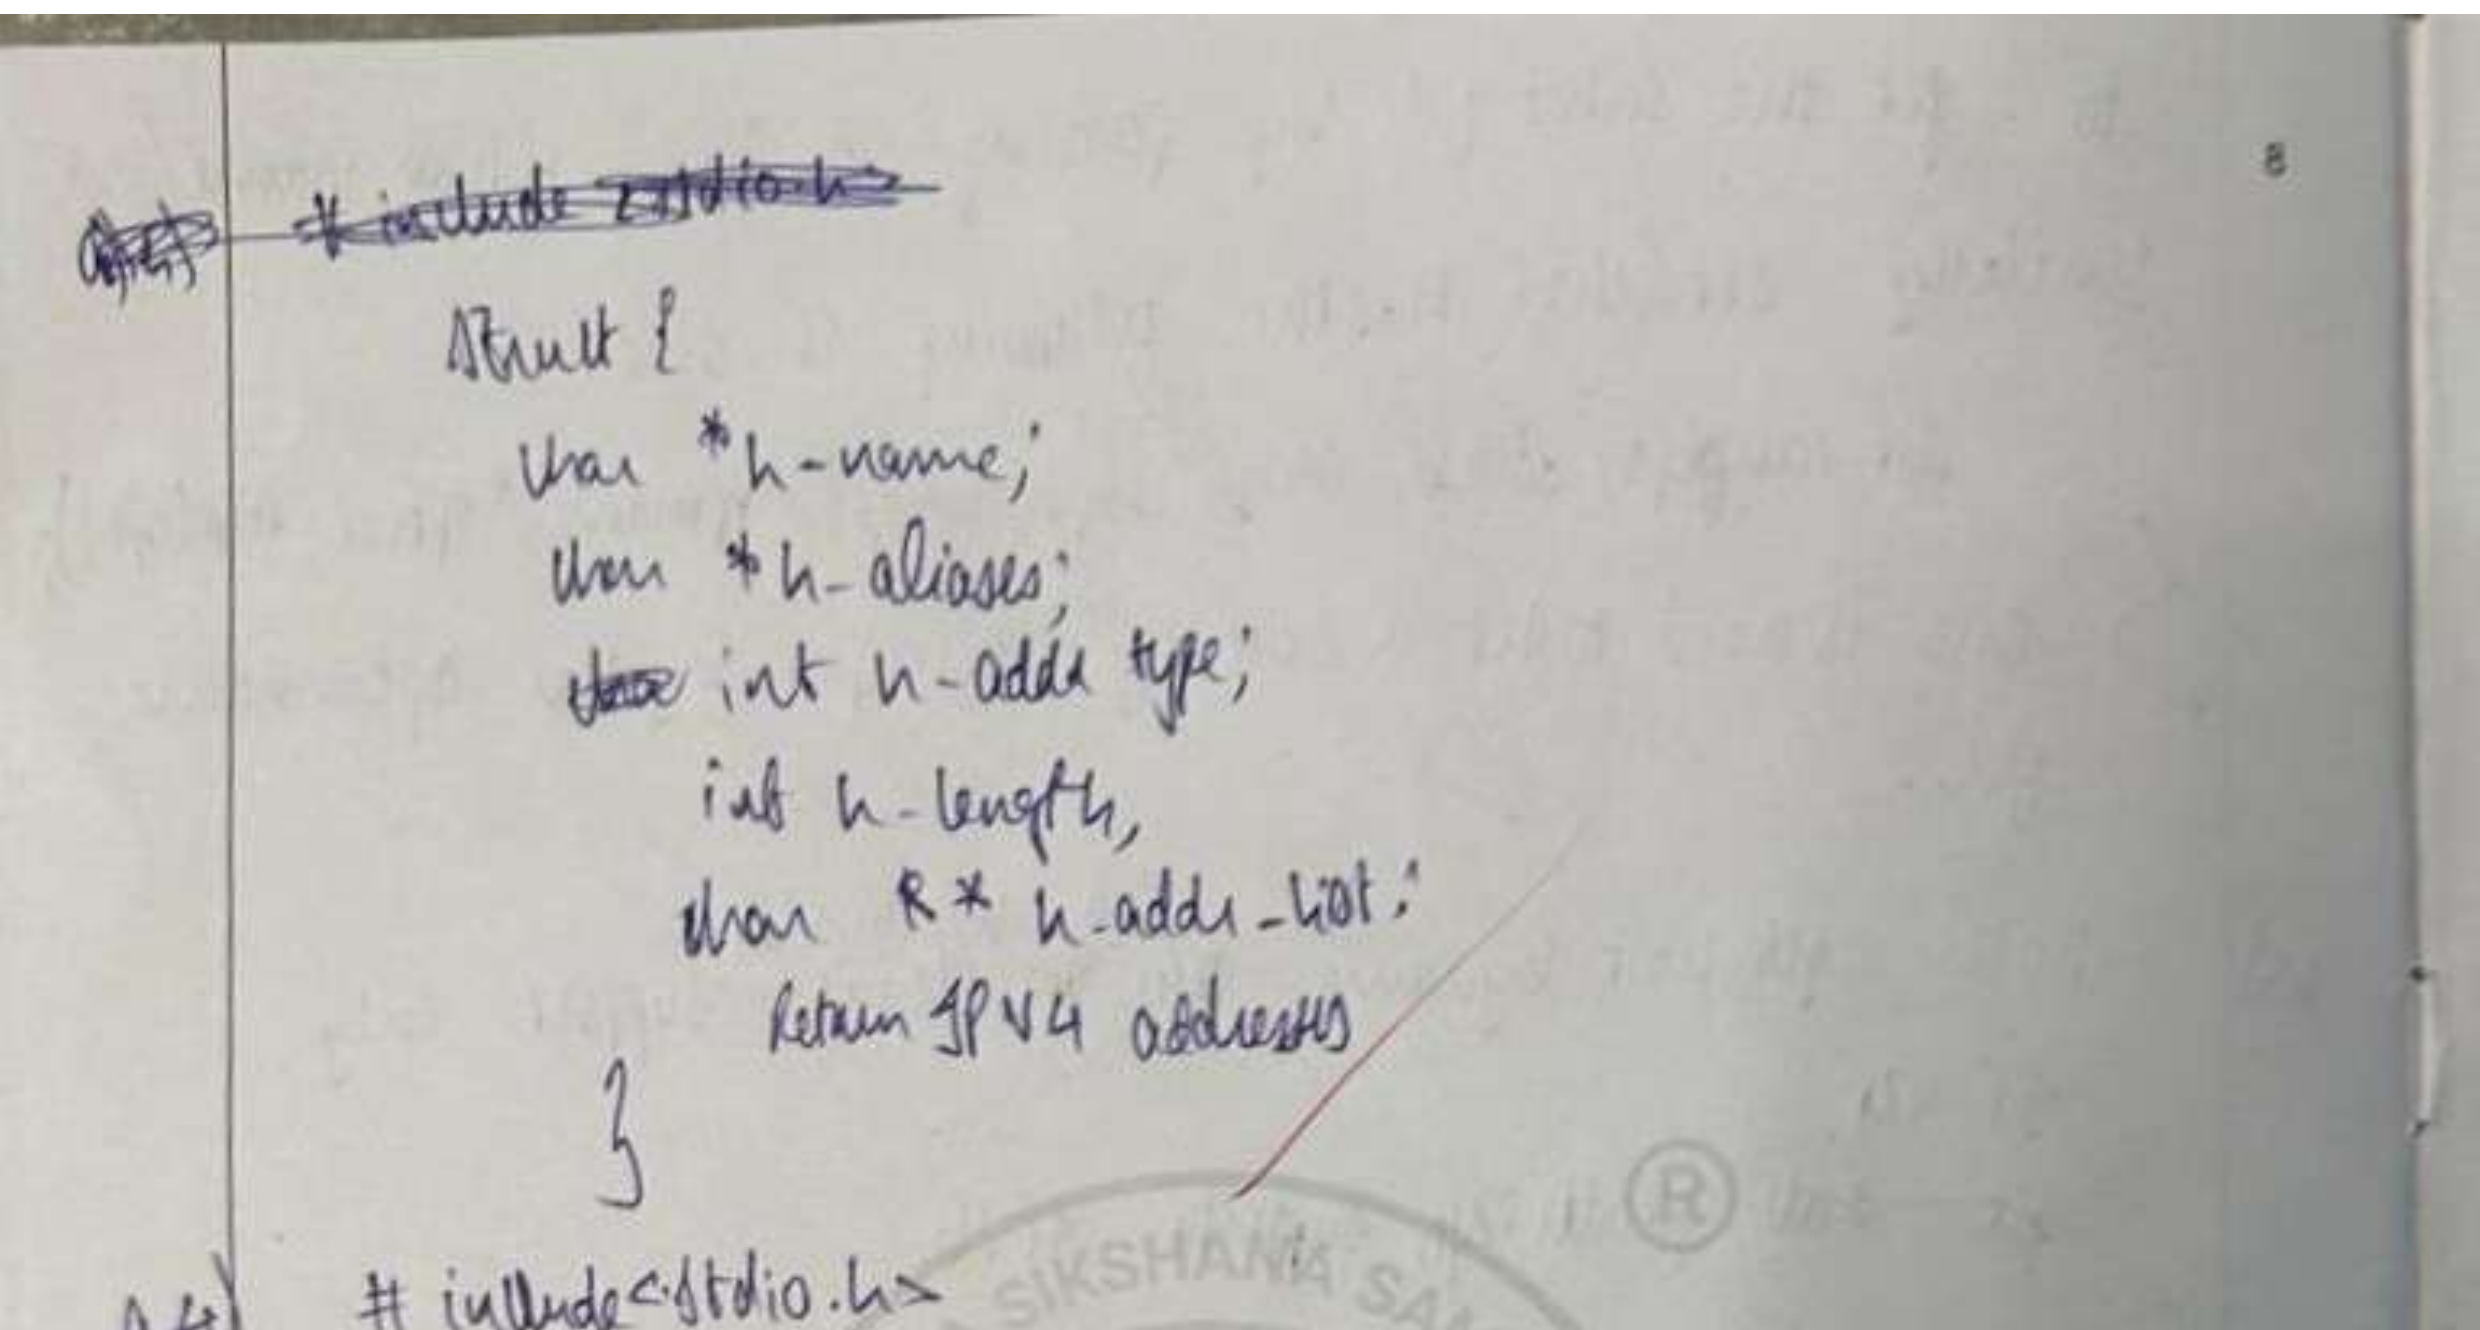 8
# include <stdio.h>
struct {
char *h-name;
char *h-aliases;
int h-addr type;
int h-length,
char ** h-addr-list;
Return IPV4 addresses
}
# include<stdio.h>
R
SIKSHANA SA